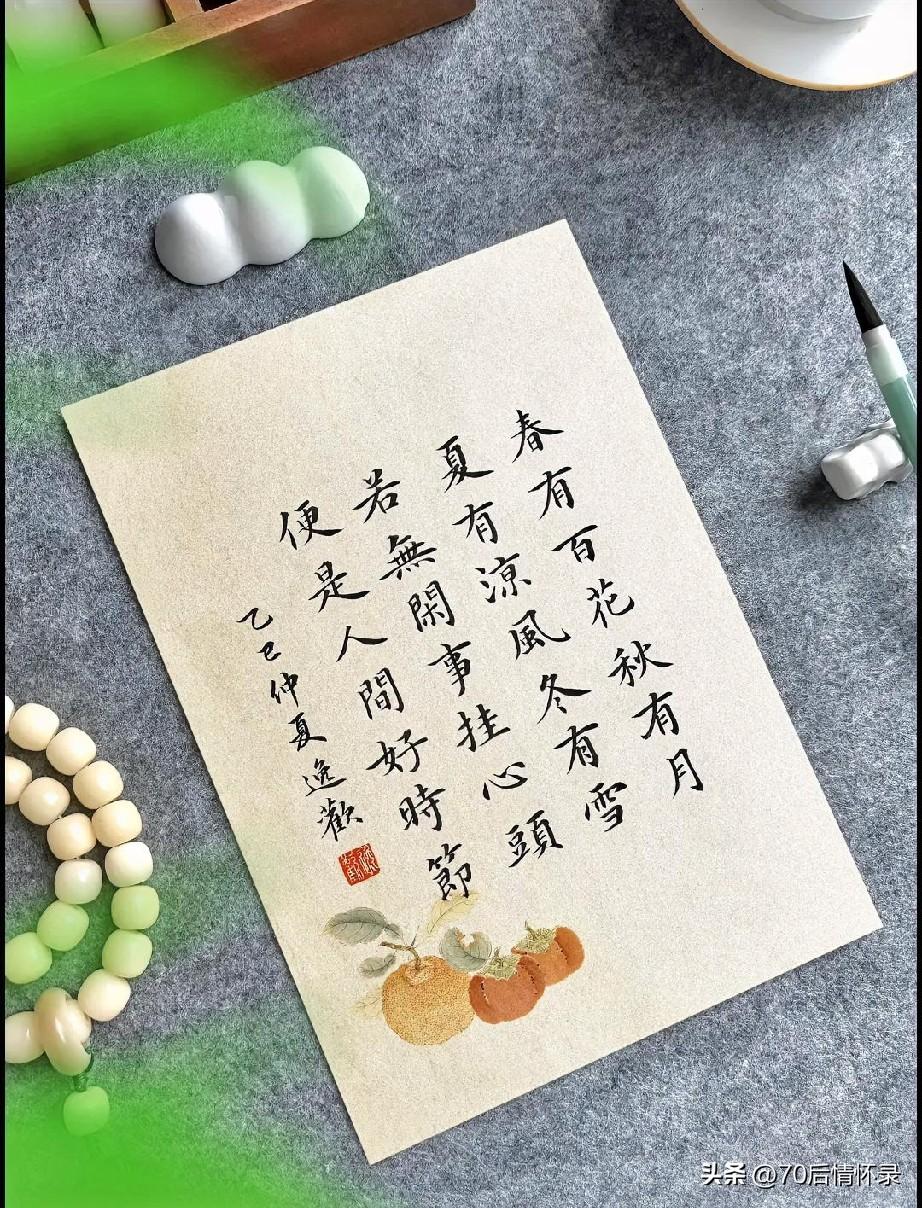 春有百花秋有月
夏有涼風冬有雪
若無閑事挂心頭
便是人間好時節
乙巳仲夏逸歡
头条 @70后情怀录